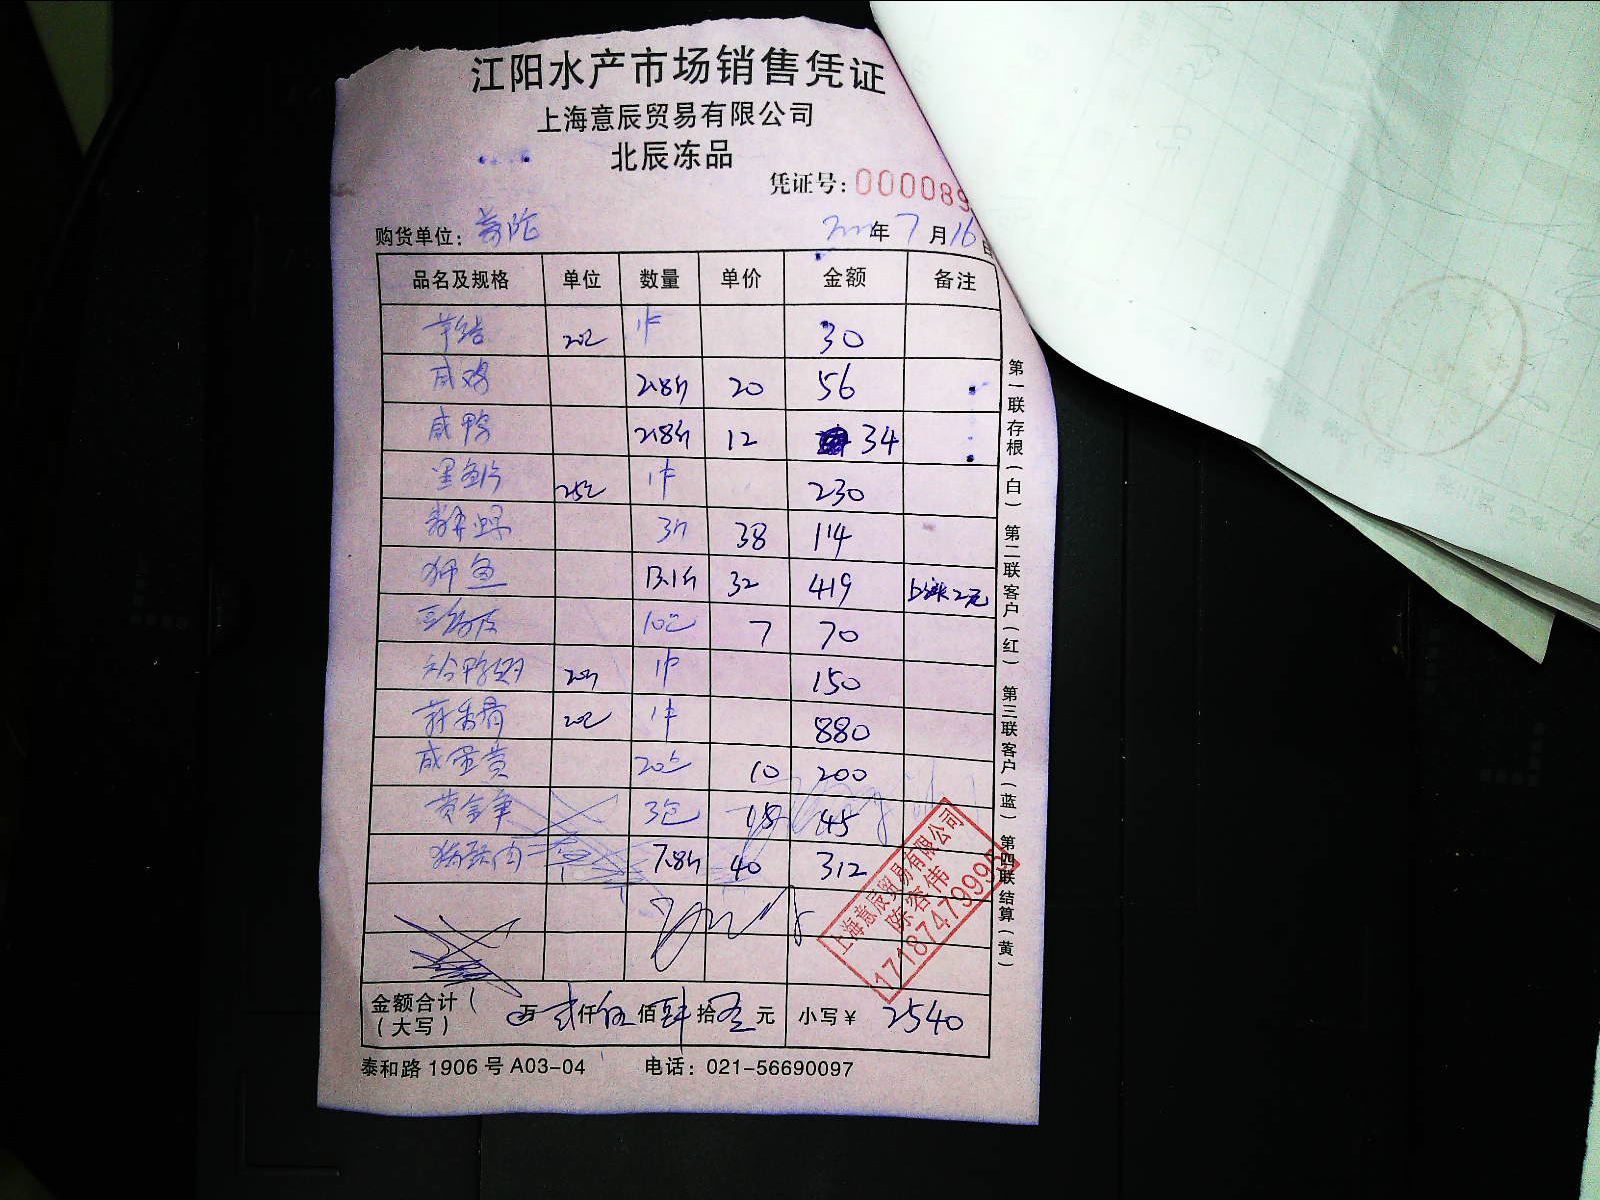 江阳水产市场销售凭证
上海意辰贸易有限公司
北辰冻品
凭证号：000089
购货单位： 年 7 月 16 日
品名及规格 单位 数量 单价 金额 备注
20包 1件 30
咸鸡 2.8斤 20 56
咸鸭 2.8斤 12 34
黑鱼片 25包 1件 230
3斤 38 114
鱼 13.1斤 32 419 上涨2元
10包 7 70
20斤 1件 150
20包 1件 880
咸蛋黄 20包 10 200
黄金 3包 15 45
肉 7.8斤 40 312
金额合计（大写） 万 贰仟 伍佰 肆拾 元 小写￥ 2540
泰和路 1906 号 A03-04 电话：021-56690097
第一联存根（白） 第二联客户（红） 第三联客户（蓝） 第四联结算（黄）
上海意辰贸易有限公司
陈容伟
17187479995